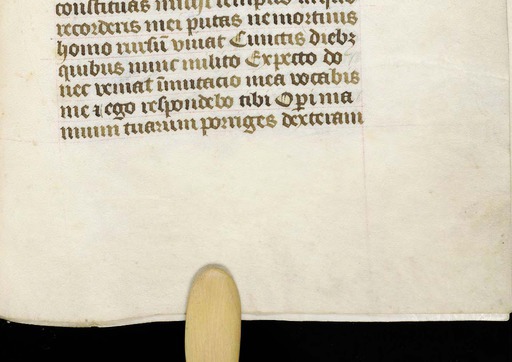 constituas michi tempus in quo
recorderis mei putas ne mortuus
homo rursū viuat Cunctis diebꝫ
quibus nunc milito Expecto do
nec veniat īmutacio mea vocabis
me ⁊ ego respondebo tibi Opi ma
nuum tuarum porriges dexteram